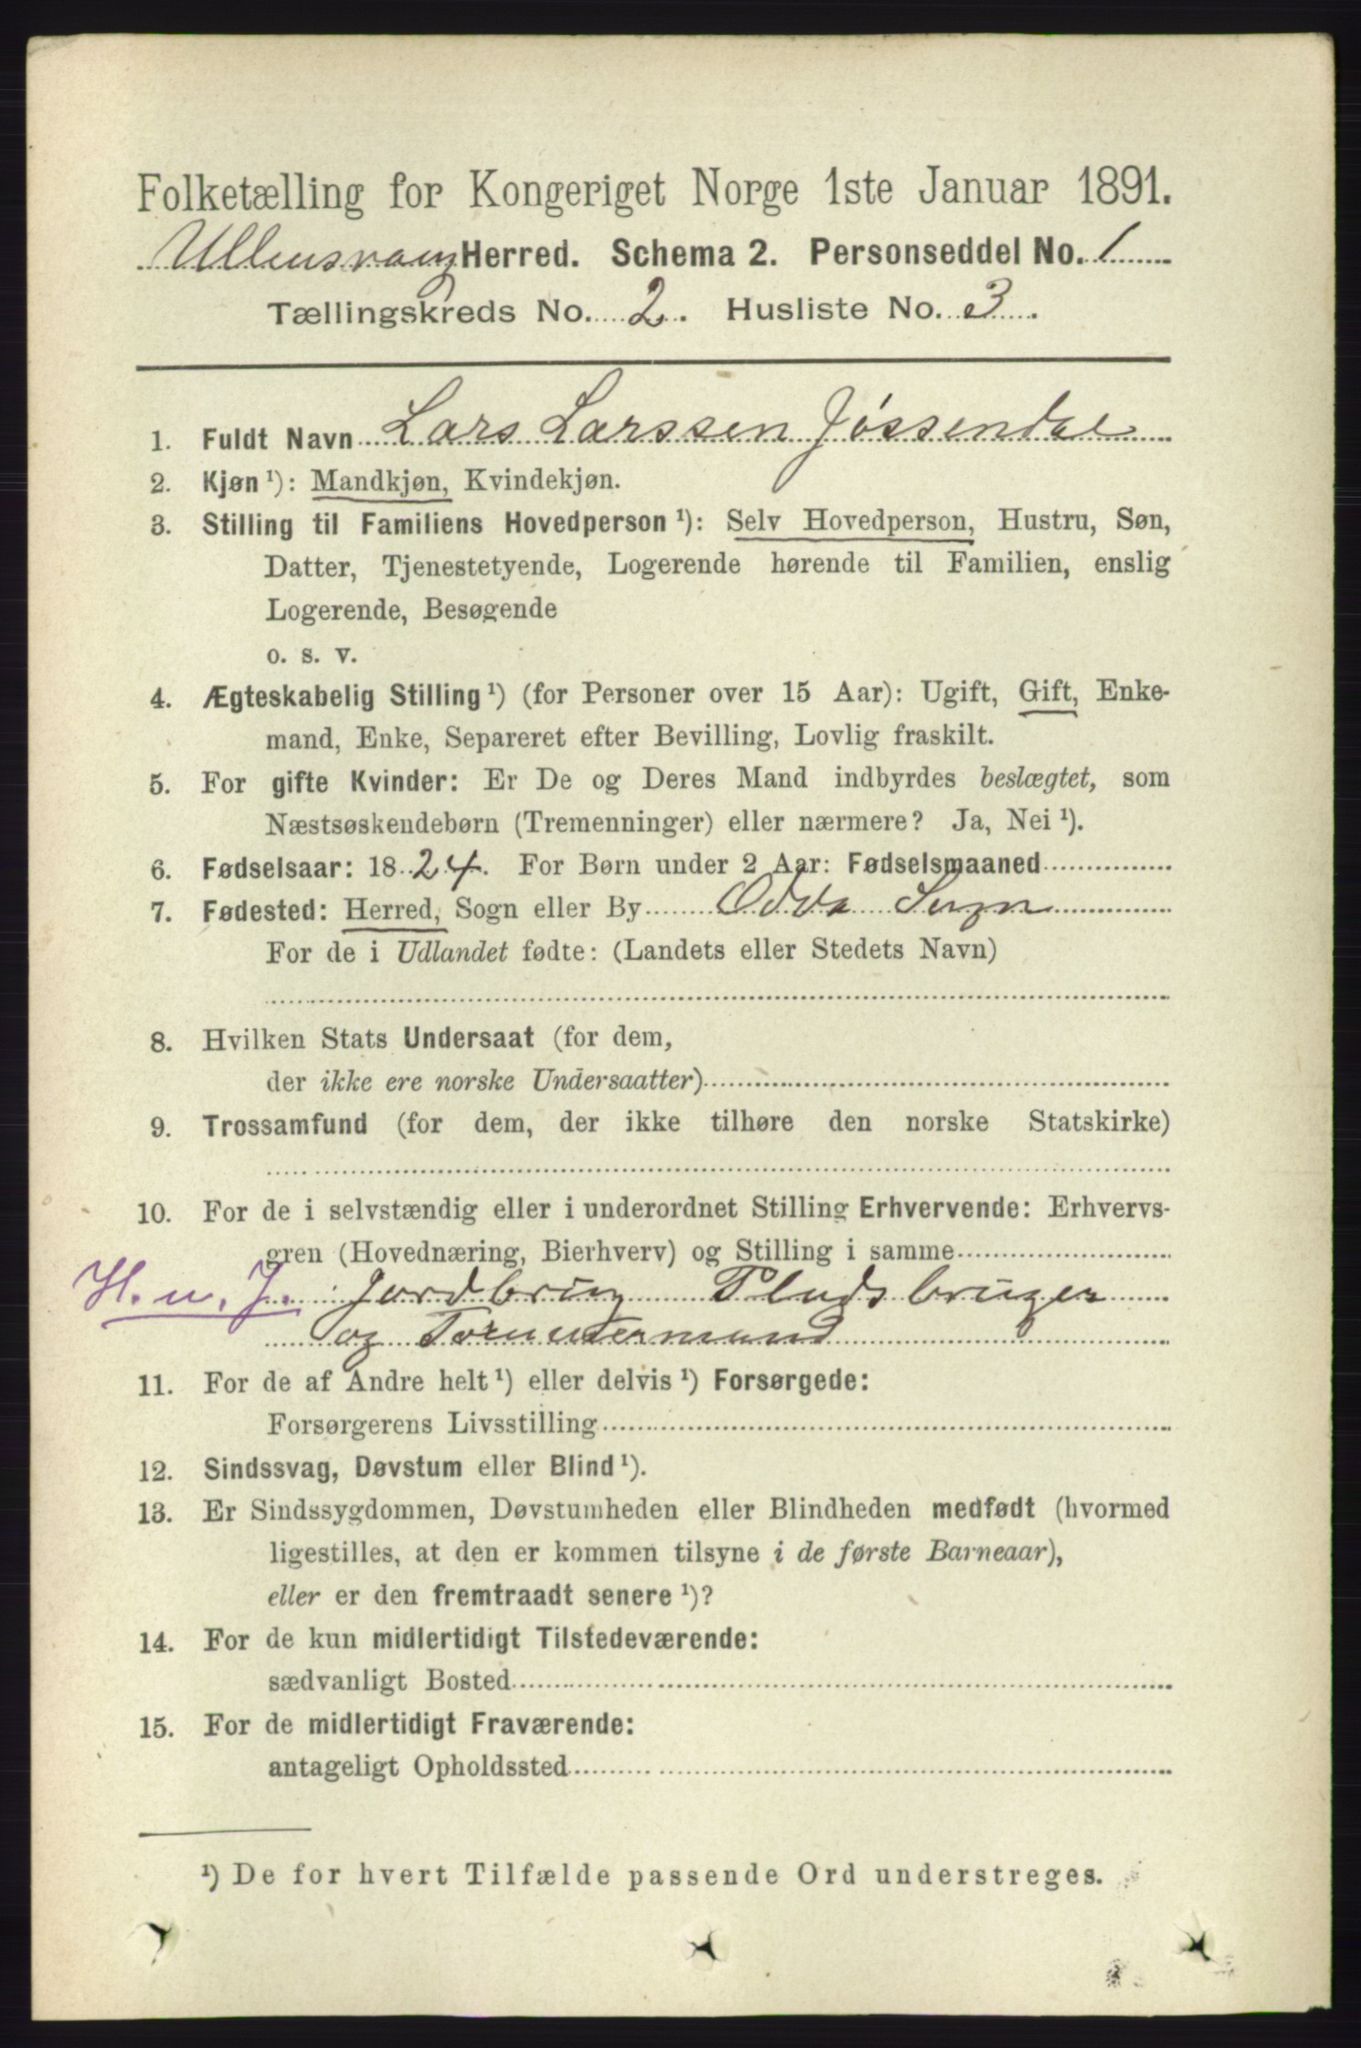 Folketælling for Kongeriget Norge 1ste Januar 1891.
Ullensvang Herred. Schema 2. Personseddel No. 1
Tællingskreds No. 2. Husliste No. 3.
1. Fuldt Navn Lars Larssen Jøssendal
2. Kjøn ¹): Mandkjøn, Kvindekjøn.
3. Stilling til Familiens Hovedperson ¹): Selv Hovedperson, Hustru, Søn,
Datter, Tjenestetyende, Logerende hørende til Familien, enslig
Logerende, Besøgende
o. s. v.
4. Ægteskabelig Stilling ¹) (for Personer over 15 Aar): Ugift, Gift, Enke-
mand, Enke, Separeret efter Bevilling, Lovlig fraskilt.
5. For gifte Kvinder: Er De og Deres Mand indbyrdes beslægtet, som
Næstsøskendebørn (Tremenninger) eller nærmere? Ja, Nei ¹).
6. Fødselsaar: 1824. For Børn under 2 Aar: Fødselsmaaned
7. Fødested: Herred, Sogn eller By Odda Sogn
For de i Udlandet fødte: (Landets eller Stedets Navn)
8. Hvilken Stats Undersaat (for dem,
der ikke ere norske Undersaatter)
9. Trossamfund (for dem, der ikke tilhøre den norske Statskirke)
10. For de i selvstændig eller i underordnet Stilling Erhvervende: Erhvervs-
gren (Hovednæring, Bierhverv) og Stilling i samme
H. u. J. Jordbrug Pladsbruger
og
11. For de af Andre helt ¹) eller delvis ¹) Forsørgede:
Forsørgerens Livsstilling
12. Sindssvag, Døvstum eller Blind ¹).
13. Er Sindssygdommen, Døvstumheden eller Blindheden medfødt (hvormed
ligestilles, at den er kommen tilsyne i de første Barneaar),
eller er den fremtraadt senere ¹)?
14. For de kun midlertidigt Tilstedeværende:
sædvanligt Bosted
15. For de midlertidigt Fraværende:
antageligt Opholdssted
¹) De for hvert Tilfælde passende Ord understreges.